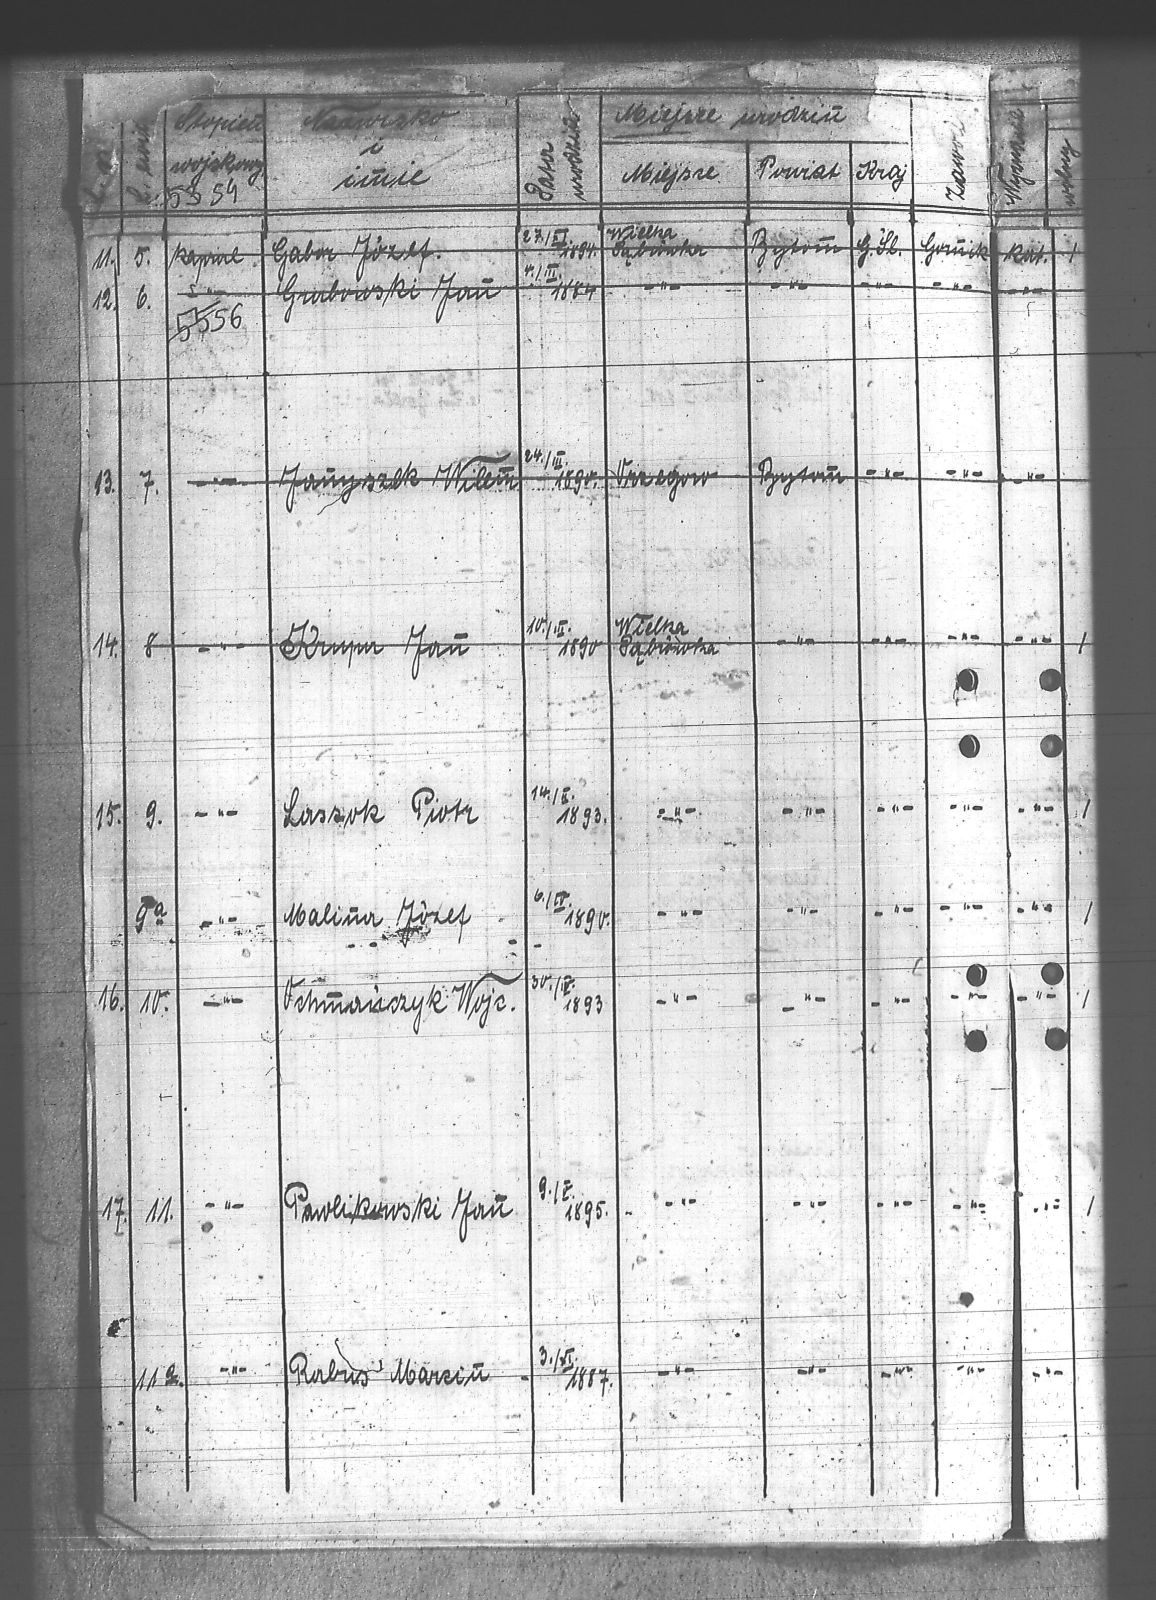 Stopień Nazwisko Miejsce urodzin
wojskowy i Data urodzin Zawód Wyznanie wolny
5354 imię Miejsce Powiat Kraj
11. 5. Kapral Gabor Józef. 27./VI. 1894. Wielka Dąbrówka Bytom G.Śl. Górnik Kat. 1
12. 6. -"- Grabowski Jan 4./III. 1884 -"- -"- -"- -"- -"-
5556
13. 7. -"- Janyszek Wilem 24./III. 1890. Orzegow Bytom -"- -"- -"-
14. 8 -"- Krupa Jan 10./III. 1890 Wielka Dąbrówka -"- -"- -"- -"- 1
15. 9. -"- Laszok Piotr 14./X. 1893. -"- -"- -"- -"- -"- 1
9a -"- Malina Józef 6./IV. 1890. -"- -"- -"- -"- -"- 1
16. 10. -"- Ochmańczyk Wojc. 30./X. 1893 -"- -"- -"- -"- -"- 1
17. 11. -"- Pawlikowski Jan 9./X. 1895. -"- -"- -"- -"- -"- 1
11a. -"- Rabus Marcin 3./XI. 1887. -"- -"- -"- -"- -"-